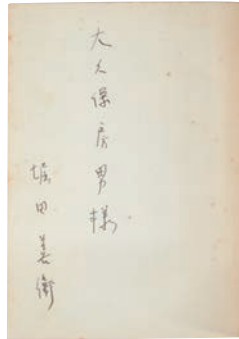 大久保房男様
堀田善衛